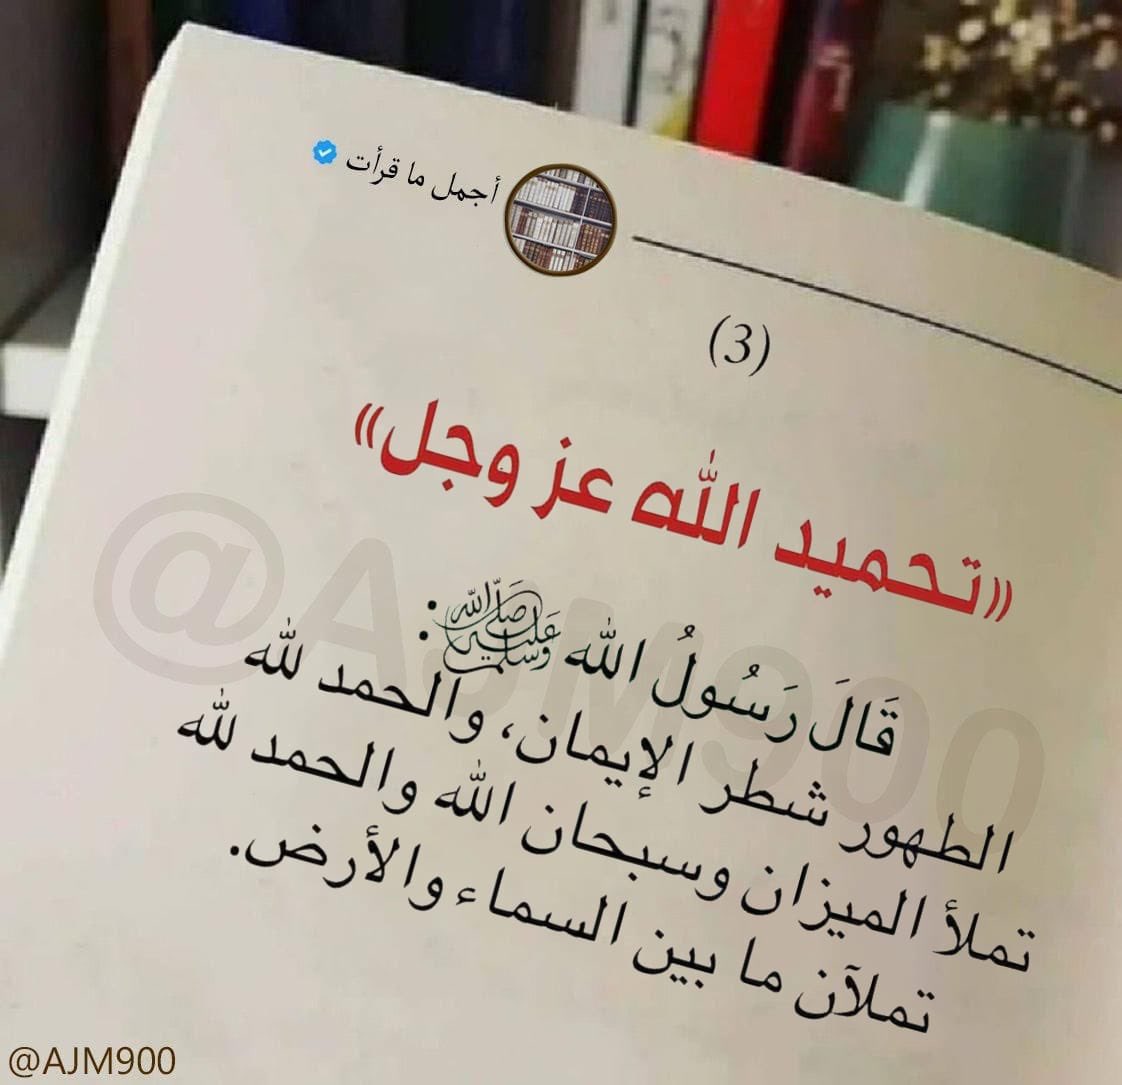 أجمل ما قرأت
(3)
«تحميد الله عز وجل»
قَالَ رَسُولُ الله ﷺ:
الطهور شطر الإيمان، والحمد لله
تملأ الميزان وسبحان الله والحمد لله
تملآن ما بين السماء والأرض.
@AJM900
@AJM900